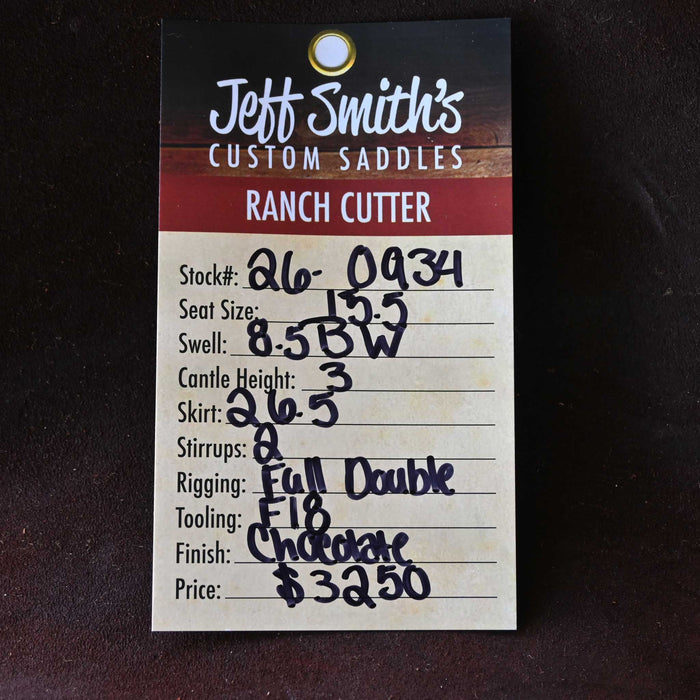 Jeff Smith's
CUSTOM SADDLES
RANCH CUTTER
Stock#: 26- 0934
Seat Size: 15.5
Swell: 8.5 BW
Cantle Height: 3
Skirt: 26.5
Stirrups: 2
Rigging: Full Double
Tooling: F18
Finish: Chocolate
Price: $3250